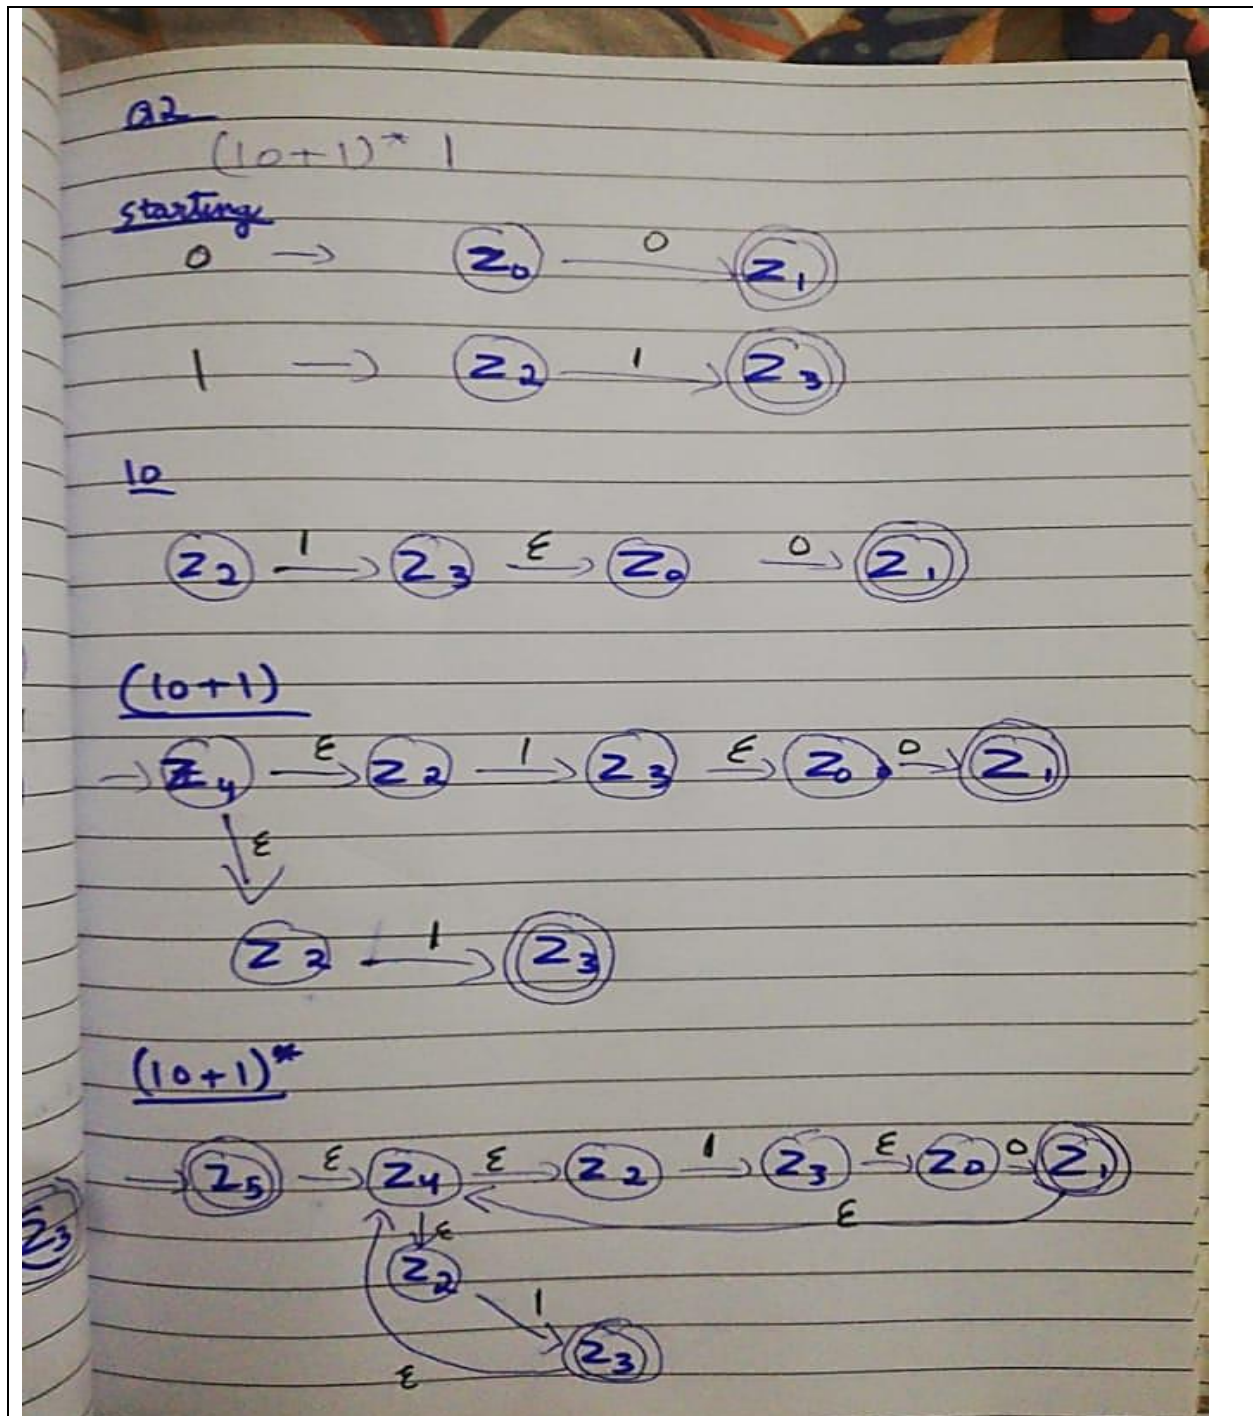 Q2
(10+1)* 1
starting
0 → Z0 0 Z1
1 → Z2 1 Z3
10
Z2 1 Z3 ε Z0 0 Z1
(10+1)
Z4 ε Z2 1 Z3 ε Z0 0 Z1
ε
Z2 1 Z3
(10+1)*
Z5 ε Z4 ε Z2 1 Z3 ε Z0 0 Z1
ε
ε
Z2
1
Z3
ε
Z3